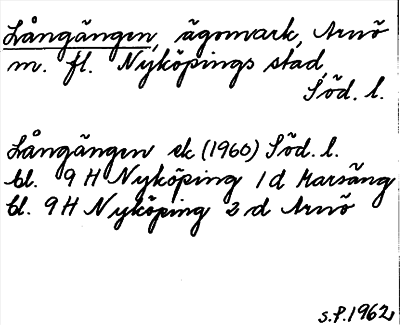 Långängen, ägomark, Arnö
m. fl. Nyköpings stad,
Söd. l.
Långängen ek (1960) Söd. l.
bl. 9 H Nyköping 1 d Marsäng
bl. 9 H Nyköping 2 d Arnö
s. P. 1962